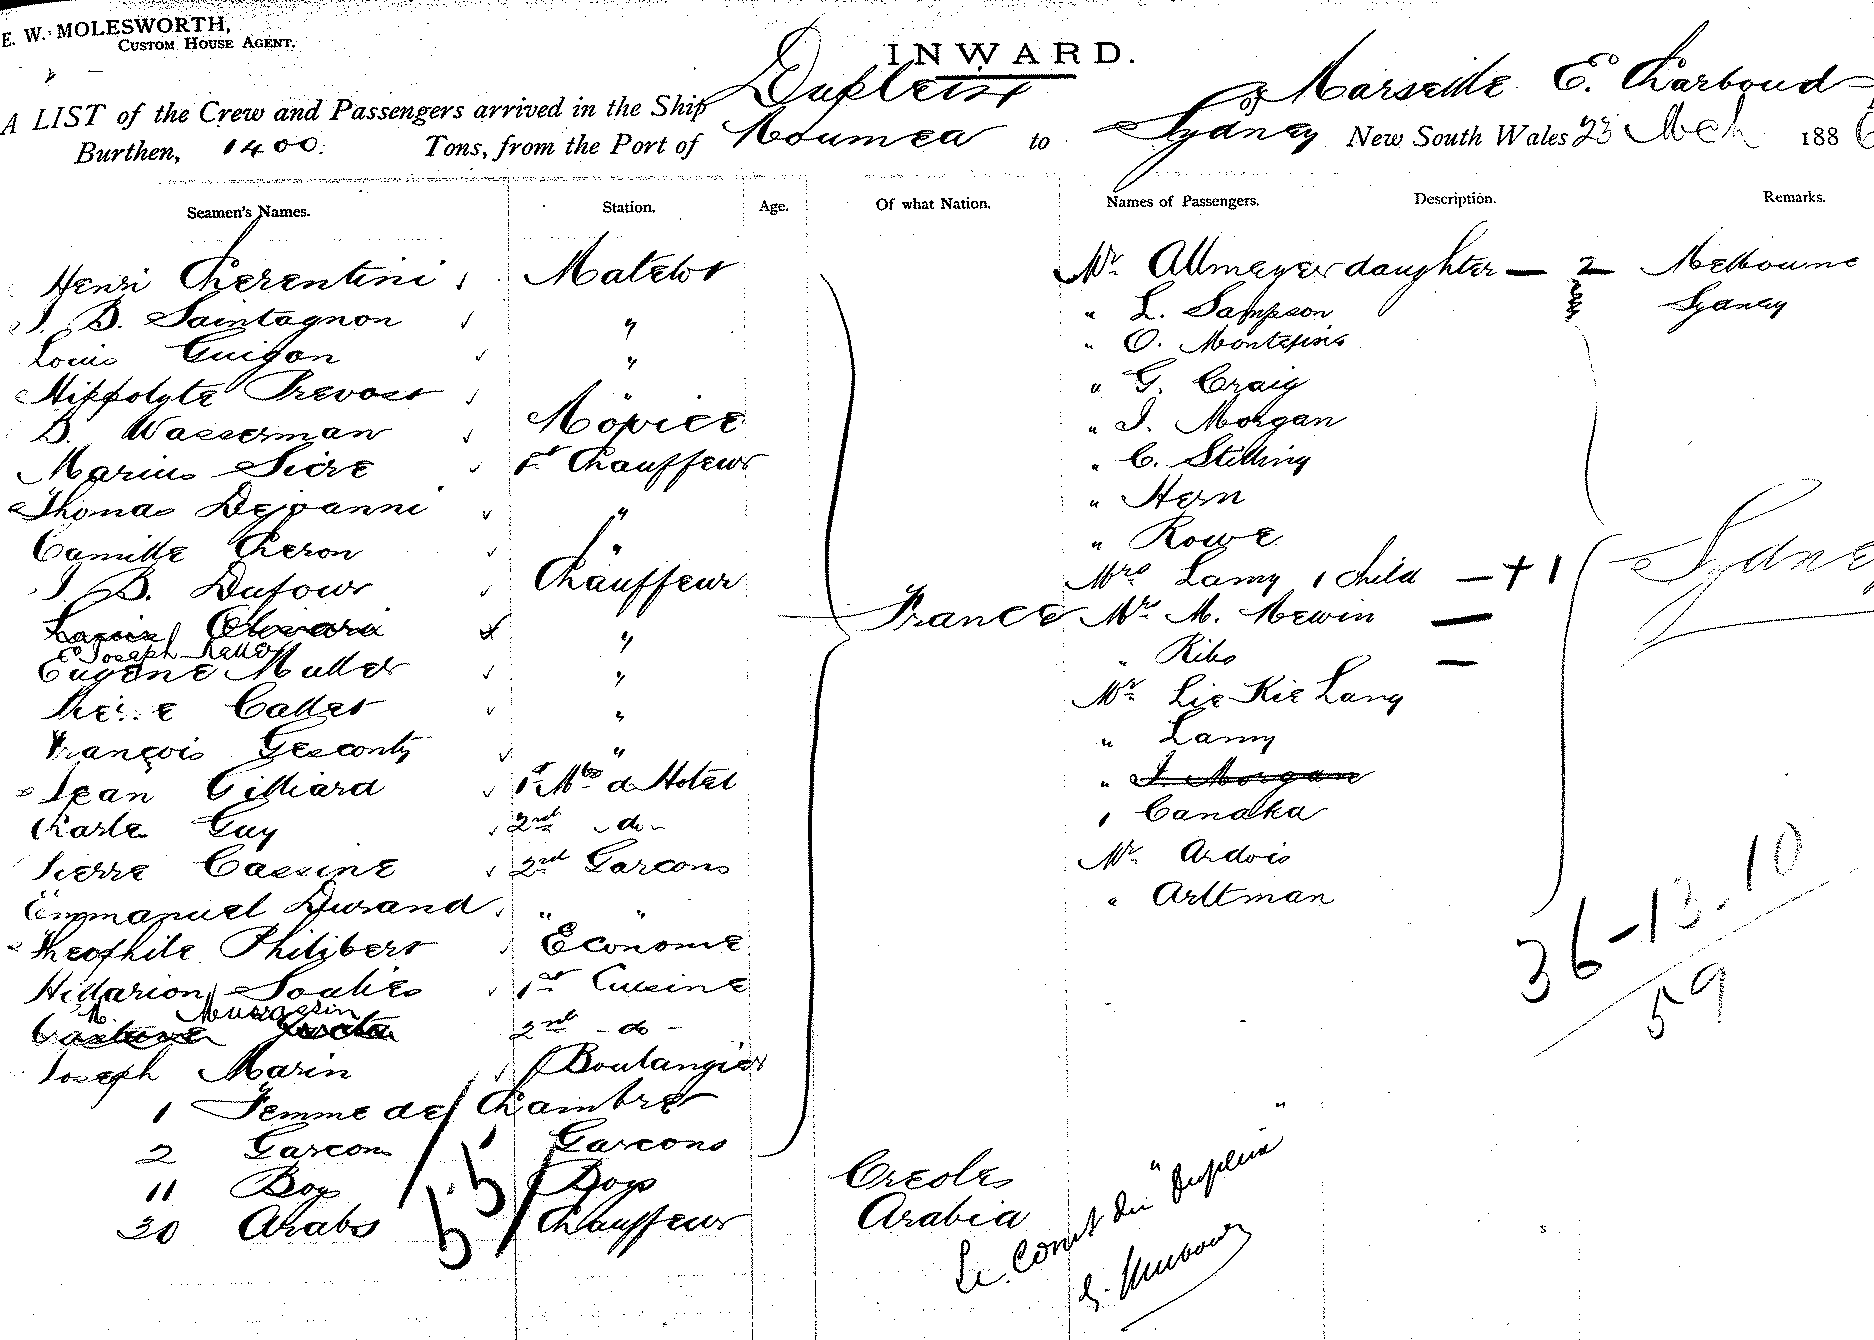 E. W. MOLESWORTH,
CUSTOM HOUSE AGENT.
INWARD.
A LIST of the Crew and Passengers arrived in the Ship Dupleix of Marseille E. Charboud
Burthen, 1400. Tons, from the Port of Noumea to Sydney New South Wales 23 Mch 1886
Seamen's Names. Station. Age. Of what Nation. Names of Passengers. Description. Remarks.
Henri Cherentini Matelot Mr. Allmeyer daughter — 2 Melbourne
J. B. Saintagnon " " L. Sampson Sydney
Louis Guigon " " O.
Hippolyte Prevost " G. Craig
D. Wasserman Novice " J. Morgan
Marius Sicre 1st Chauffeur " C. Stilling
Thomas Dejoanni " " Hern
Camille Cheron " " Rowe
J. B. Dufour Chauffeur Mrs Lamy 1 child — + 1 Sydney
" France Mr. M. Mewin —
E. Joseph
Eugene Muller " " Ribo —
Pierre Callet " Mr. Lie Kie Lang
François Gesconty " " Lamy
Jean Gilliard 1st Mtre d Hotel " J. Morgan
Charle Guy 2nd - do - " Canaka
Pierre Cassine 2nd Garcons Mr. Ardois
Emmanuel Durand " " " Arltman
Theophile Philibert Econome
Hillarion Soulies 1st Cuisine 36-13.10
M.
2nd - do - 59
Joseph Marin Boulangier
1 Femme de Chambre
2 Garcon Garcons
11 Boy Boys Creoles
30 Arabs Chauffeur Arabia
55
Le Comt du "Dupleix"